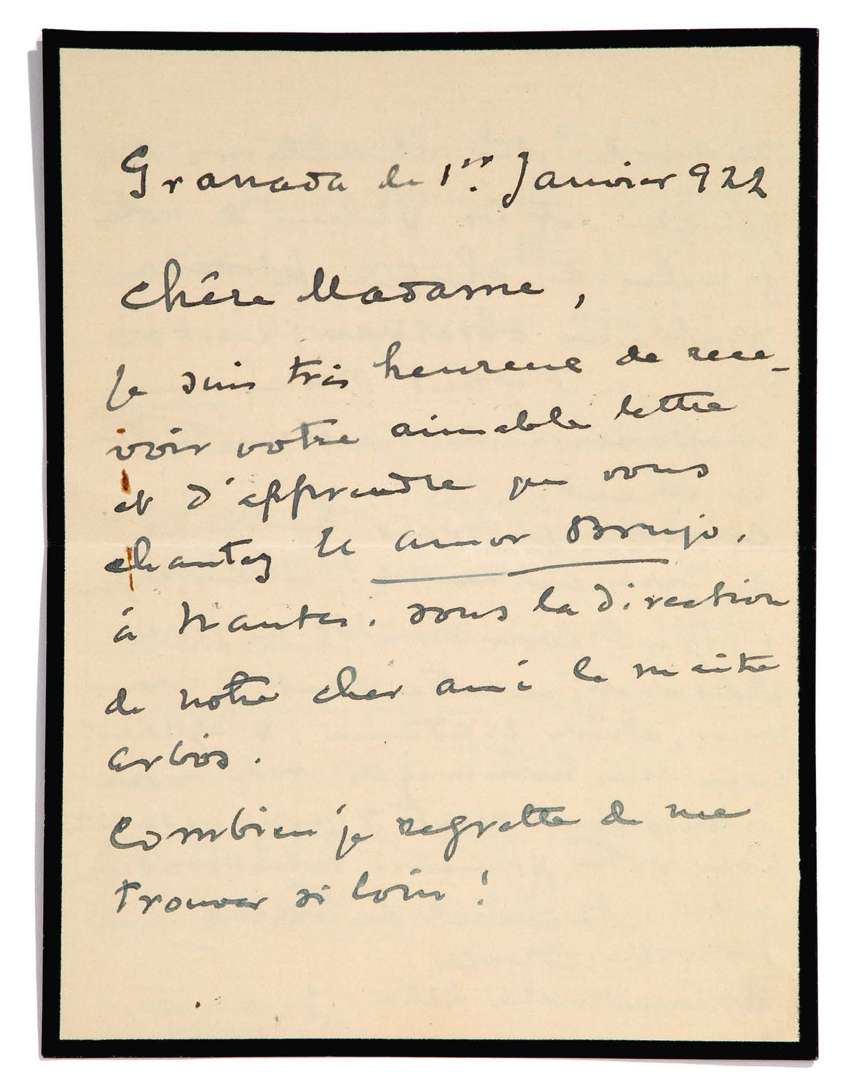 Granada le 1er. Janvier 922
Chère Madame,
Je suis très heureux de rece-
voir votre aimable lettre
et d'apprendre que vous
chantez El amor Brujo,
à Nantes, sous la direction
de notre cher ami le maître
Arbós.
Combien je regrette de me
trouver si loin!